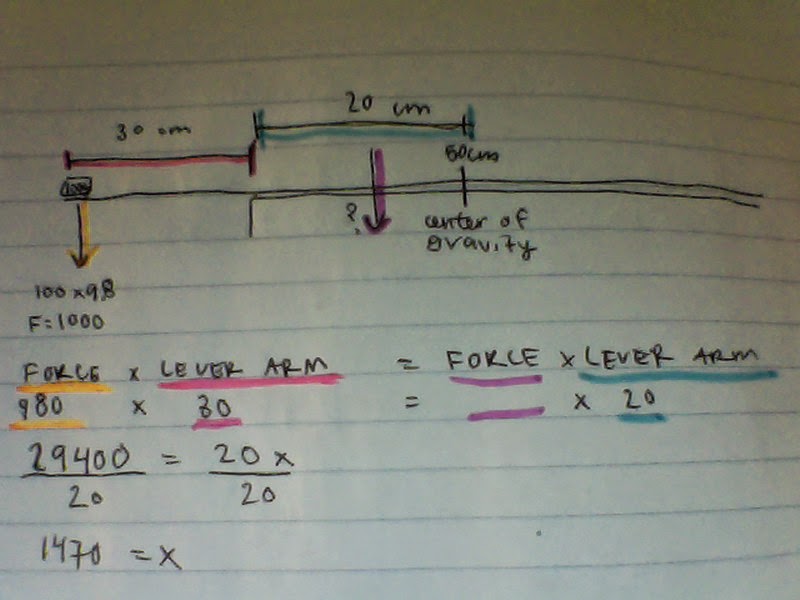 20 cm
30 cm
50cm
100g
?
center of
gravity
100 x 9.8
F=1000
FORCE x LEVER ARM = FORCE x LEVER ARM
980 x 30 = ___ x 20
29400 = 20x
20 20
1470 = x